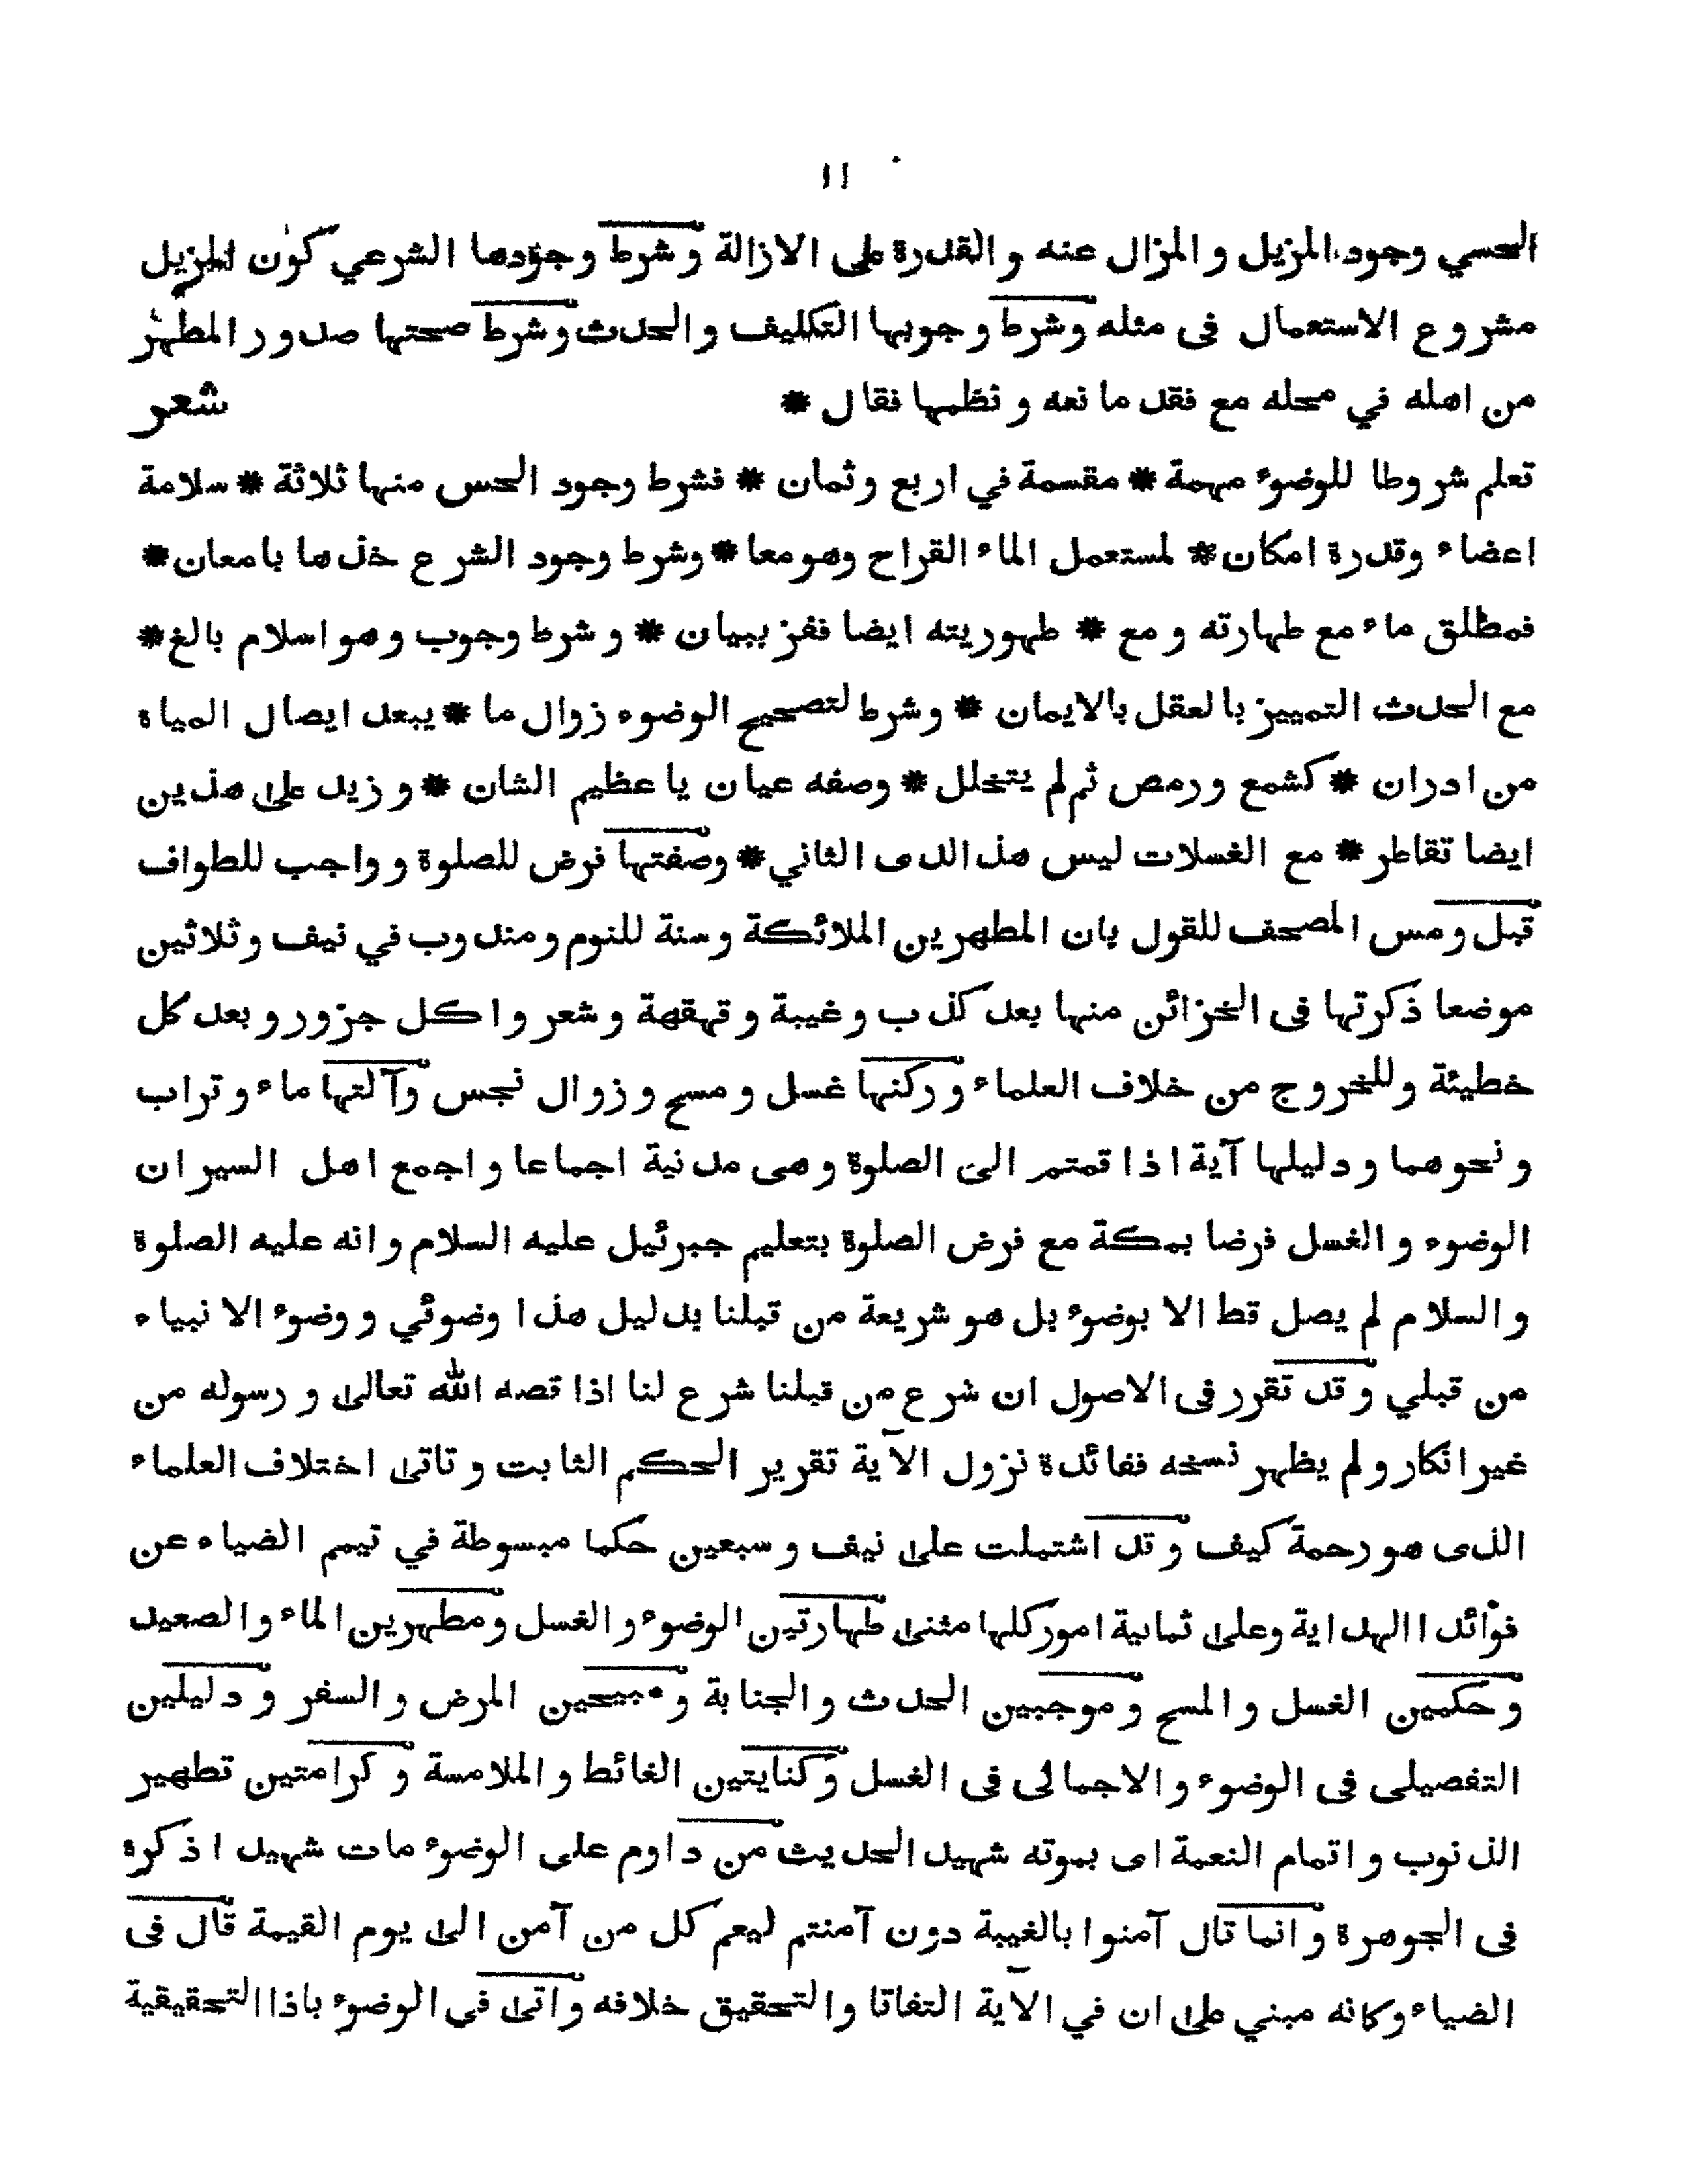 ١١
الحسي وجود المزيل والمزال عنه والقدرة على الازالة وشرط وجودها الشرعي كون المزيل
مشروع الاستعمال فى مثله وشرط وجوبها التكليف والحدث وشرط صحتها صدور المطهر
من اهله في محله مع فقد مانعه ونظمها فقال * شعر
تعلم شروطا للوضوء مهمة * مقسمة في اربع وثمان * فشرط وجود الحس منها ثلاثة * سلامة
اعضاء وقدرة امكان * لمستعمل الماء القراح وهو معا * وشرط وجود الشرع خذها بامعان *
فمطلق ماء مع طهارته ومع * طهوريته ايضا ففز ببيان * وشرط وجوب وهو اسلام بالغ *
مع الحدث التمييز بالعقل بالايمان * وشرط لتصحيح الوضوء زوال ما * يبعد ايصال المياه
من ادران * كشمع ورمص ثم لم يتخلل * وصفه عيان يا عظيم الشان * وزيد على هذين
ايضا تقاطر * مع الغسلات ليس هذا لدى الثاني * وصفتها فرض للصلوة وواجب للطواف
قبل ومس المصحف للقول بان المطهرين الملائكة وسنة للنوم ومندوب في نيف وثلاثين
موضعا ذكرتها فى الخزائن منها بعد كذب وغيبة وقهقهة وشعر واكل جزور وبعد كل
خطيئة وللخروج من خلاف العلماء وركنها غسل ومسح وزوال نجس وآلتها ماء وتراب
ونحوهما ودليلها آية اذا قمتم الى الصلوة وهى مدنية اجماعا واجمع اهل السير ان
الوضوء والغسل فرضا بمكة مع فرض الصلوة بتعليم جبرئيل عليه السلام وانه عليه الصلوة
والسلام لم يصل قط الا بوضوء بل هو شريعة من قبلنا بدليل هذا وضوئي ووضوء الانبياء
من قبلي وقد تقرر فى الاصول ان شرع من قبلنا شرع لنا اذا قصه الله تعالى ورسوله من
غير انكار ولم يظهر نسخه ففائدة نزول الآية تقرير الحكم الثابت وتاتى اختلاف العلماء
الذى هو رحمة كيف وقد اشتملت على نيف وسبعين حكما مبسوطة في تيمم الضياء عن
فوائد االهداية وعلى ثمانية امور كلها مثنى طهارتين الوضوء والغسل ومطهرين الماء والصعيد
وحكمين الغسل والمسح وموجبين الحدث والجنابة ومبيحين المرض والسفر ودليلين
التفصيلى فى الوضوء والاجمالى فى الغسل وكنايتين الغائط والملامسة وكرامتين تطهير
الذنوب واتمام النعمة اى بموته شهيد الحديث من داوم على الوضوء مات شهيدا ذكره
فى الجوهرة وانما قال آمنوا بالغيبة دون آمنتم ليعم كل من آمن الى يوم القيمة قال فى
الضياء وكانه مبني على ان في الآية التفاتا والتحقيق خلافه واتى في الوضوء باذا التحقيقية